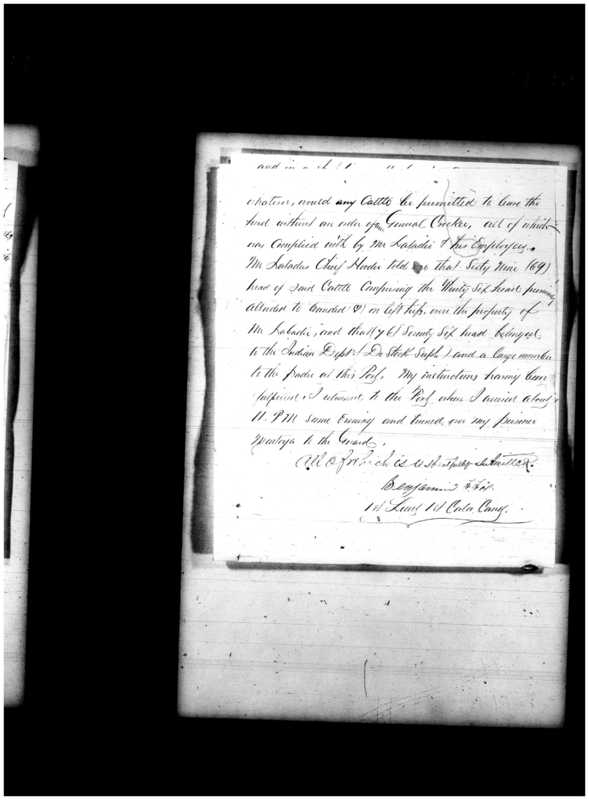 and in
whatever, would any Cattle be permitted to leave the
herd without an order of General Crocker, all of which
was Complied with by Mr Labadie & his Employees.
Mr Labadies Chief Herder told me that Sixty Nine (69)
head of said Cattle Comprising the Thirty Six head previously
alluded to branded on left hip, were the property of
Mr Labadie, and that (76) Seventy Six head belonged
to the Indian Dept and a large number
to the trader at this Post. My instructions having been
fulfilled, I returned to the Post where I arrived about
11. P M same Evening and turned over my prisoner
Montoya to the Guard.
All of which is respectfully submitted.
Benjamin Fox
1st Lieut 1st Cav.